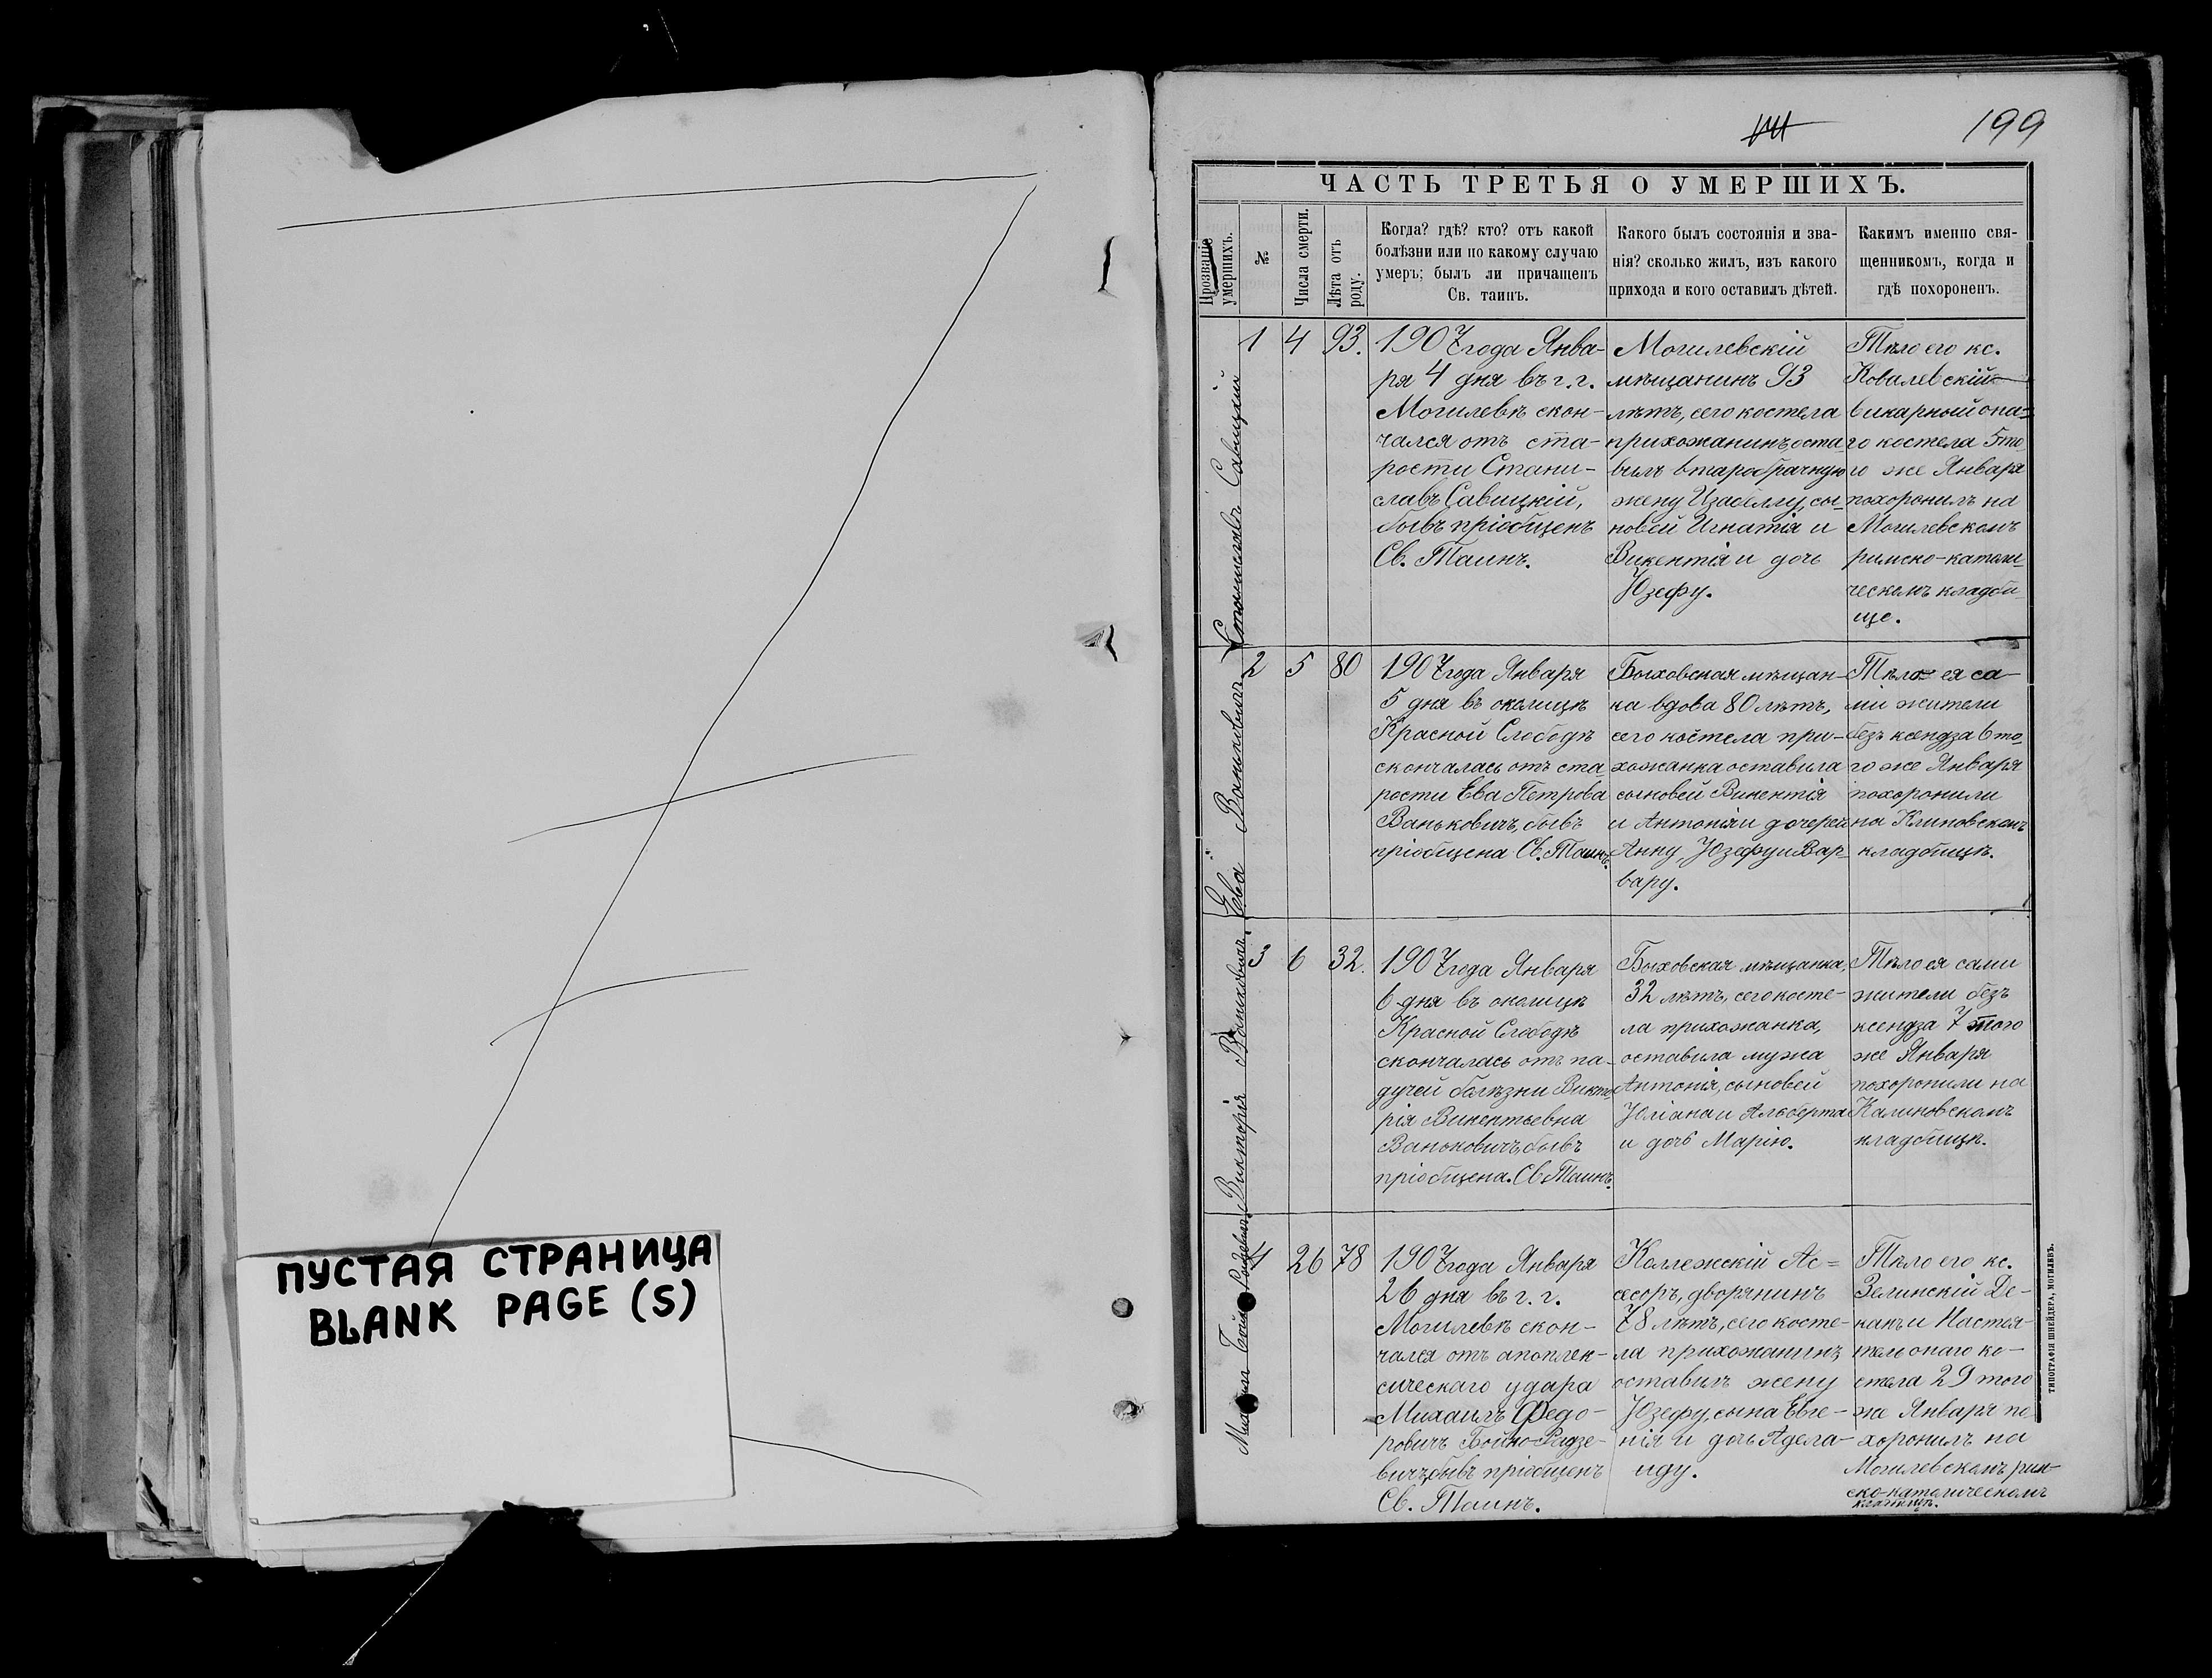 ПУСТАЯ СТРАНИЦА
BLANK PAGE (S)
199
ЧАСТЬ ТРЕТЬЯ О УМЕРШИХЪ.
Прозваніе
умершихъ.
№
Числа смерти.
Лѣта отъ
роду.
Когда? гдѣ? кто? отъ какой
болѣзни или по какому случаю
умеръ; былъ ли причащенъ
Св. таинъ.
Какого былъ состоянія и зва-
нія? сколько жилъ, изъ какого
прихода и кого оставилъ дѣтей.
Какимъ именно свя-
щенникомъ, когда и
гдѣ похороненъ.
Станиславъ Савицкій
1
4
93.
1907 года Янва-
ря 4 дня въ г. г.
Могилевѣ скон-
чался отъ ста-
рости Стани-
славъ Савицкій,
бывъ пріобщенъ
Св. Таинъ.
Могилевскій
мѣщанинъ 93
лѣтъ, сего костела
прихожанинъ, оста-
вилъ второбрачную
жену Изабеллу, сы-
новей Игнатія и
Викентія и дочь
Юзефу.
Тѣло его кс.
Ковалевскій
викарный она-
го костела 5 то-
го же Января
похоронилъ на
Могилевскомъ
римско-католи-
ческомъ кладби-
ще.
Ева Ваньковичъ
2
5
80
1907 года Января
5 дня въ околицѣ
Красной Слободѣ
скончалась отъ ста
рости Ева Петрова
Ваньковичъ, бывъ
пріобщена Св. Таинъ.
Быховская мѣщан-
ка вдова 80 лѣтъ,
сего костела при-
хожанка оставила
сыновей Викентія
и Антонія и дочерей
Анну, Юзефу и Вар-
вару.
Тѣло ея са-
ми жители
безъ ксендза 6 то-
го же Января
похоронили
наКлиновскомъ
кладбищѣ.
Викторія Ваньковичъ.
3
6
32.
1907 года Января
6 дня въ околицѣ
Красной Слободѣ
скончалась отъ па-
дучей болѣзни Викто-
рія Викентьевна
Ваньковичъ, бывъ
пріобщена Св. Таинъ.
Быховская мѣщанка,
32 лѣтъ, сего косте-
ла прихожанка,
оставила мужа
Антонія, сыновей
Юліана и Альберта
и дочь Марію.
Тѣло ея сами
жители безъ
ксендза 7 того
же Января
похоронили на
Калиновскомъ
кладбищѣ.
Михаилъ Бойно-Родзевичъ.
4
26
78
1907 года Января
26 дня въ г. г.
Могилевѣ скон-
чался отъ апоплек-
сическаго удара
Михаилъ Федо-
ровичъ Бойно-Радзе-
вичъ, бывъ пріобщенъ
Св. Таинъ.
Коллежскій Ас=
сесоръ, дворянинъ
78 лѣтъ, сего косте-
ла прихожанинъ
оставилъ жену
Юзефу, сына Евге-
нія и дочь Адела-
иду.
Тѣло его кс.
Зелинскій Де-
канъ и Настоя-
тель онаго ко-
стела 29 того
же Января по
хоронилъ на
Могилевскомъ рим-
ско-католическомъ
кладбищѣ.
ТИПОГРАФІЯ ШНЕЙДЕРА, МОГИЛЕВЪ.